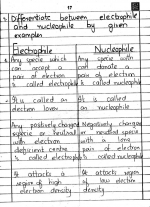 17
Differentiate between electrophile
and nucleophile by given
examples
Electrophile Nucleophile
Any specie which Any specie that
can accept a can donate a
pair of electron pair of electron
is called electrophile is called nucleophile
It is called as It is called
electron lover as nucleophile
Any positively charged Negatively charged
specie or neutral or neutral specie
with electron with a lone
deficient centre pair of electron
is called electrophile is called nucleophile
It attacks a It attacks region
region of high of low electron
electron density density